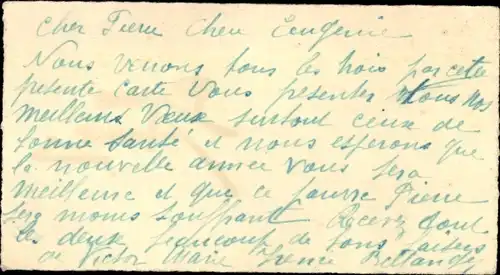 Cher Pierre Chere Eugenie
Nous venons tous les trois par cette
présente carte vous présenter tous nos
meilleurs Vœux surtout ceux de
bonne santé et nous esperons que
la nouvelle année vous sera
meilleure et que ce pauvre Pierre
sera moins souffrant Recevez tout
les deux beaucoup de bons baisers
de Victor Marie